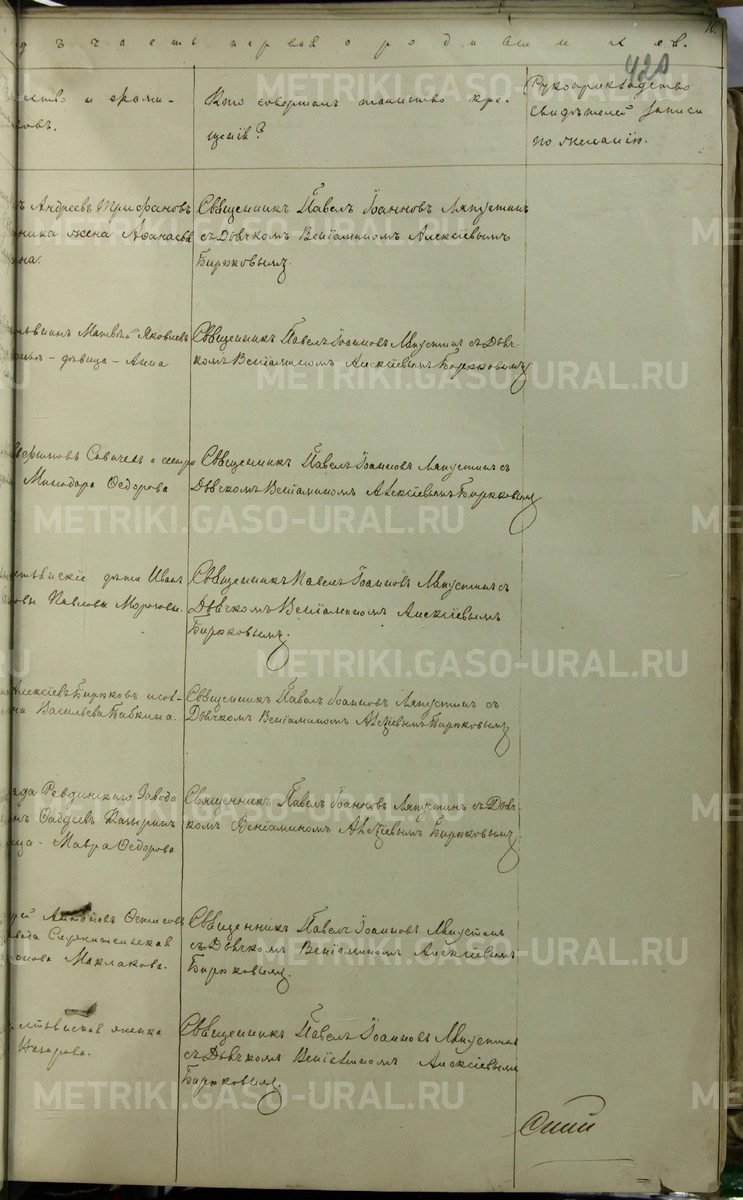 10.
ъ часть первая о родившихся.
420
ество и фами-
овъ.
Кто совершалъ таинство кре-
щенія?
Рукоприкладство
свидѣтелей записи
по желанію.
ъ Андреевъ Трифановъ
ника жена Афанасьѣ
на.
Священникъ Павелъ Іоанновъ Ляпустинъ
съ Дьячкомъ Веніаминомъ Алексіевымъ
Бирюковымъ.
Матвѣй Яковлевъ
дѣвица - Анна
Священникъ Павелъ Іоанновъ Ляпустинъ съ Дьяч-
комъ Веніаминомъ Алексіевымъ Бирюковымъ
Савичевъ
Минодора Ѳедорова
Священникъ Павелъ Іоанновъ Ляпустинъ съ
Дьячкомъ Веніаминомъ Алексіевымъ Бирюковымъ.
дѣти Иванъ
Павловы Морозовы.
Священникъ Павелъ Іоанновъ Ляпустинъ съ
Дьячкомъ Веніаминомъ Алексіевымъ
Бирюковымъ.
Алексіевъ Бирюковъ
на Васильева Бабкина.
Священникъ Павелъ Іоанновъ Ляпустинъ съ
Дьячкомъ Веніаминомъ Алексіевымъ Бирюковымъ
Ревдинскаго Завода
нъ Фаддеевъ
ица - Мавра Ѳедорова
Священникъ Павелъ Іоанновъ Ляпустинъ съ Дьяч-
комъ Веніаминомъ Алексіевымъ Бирюковымъ.
Антоновъ
вода
Маклакова.
Священникъ Павелъ Іоанновъ Ляпустинъ
съ Дьячкомъ Веніаминомъ Алексіевымъ
Бирюковымъ.
женка
Назарова.
Священникъ Павелъ Іоанновъ Ляпустинъ
съ Дьячкомъ Веніаминомъ Алексіевымъ
Бирюковымъ.
METRIKI.GASO-URAL.RU